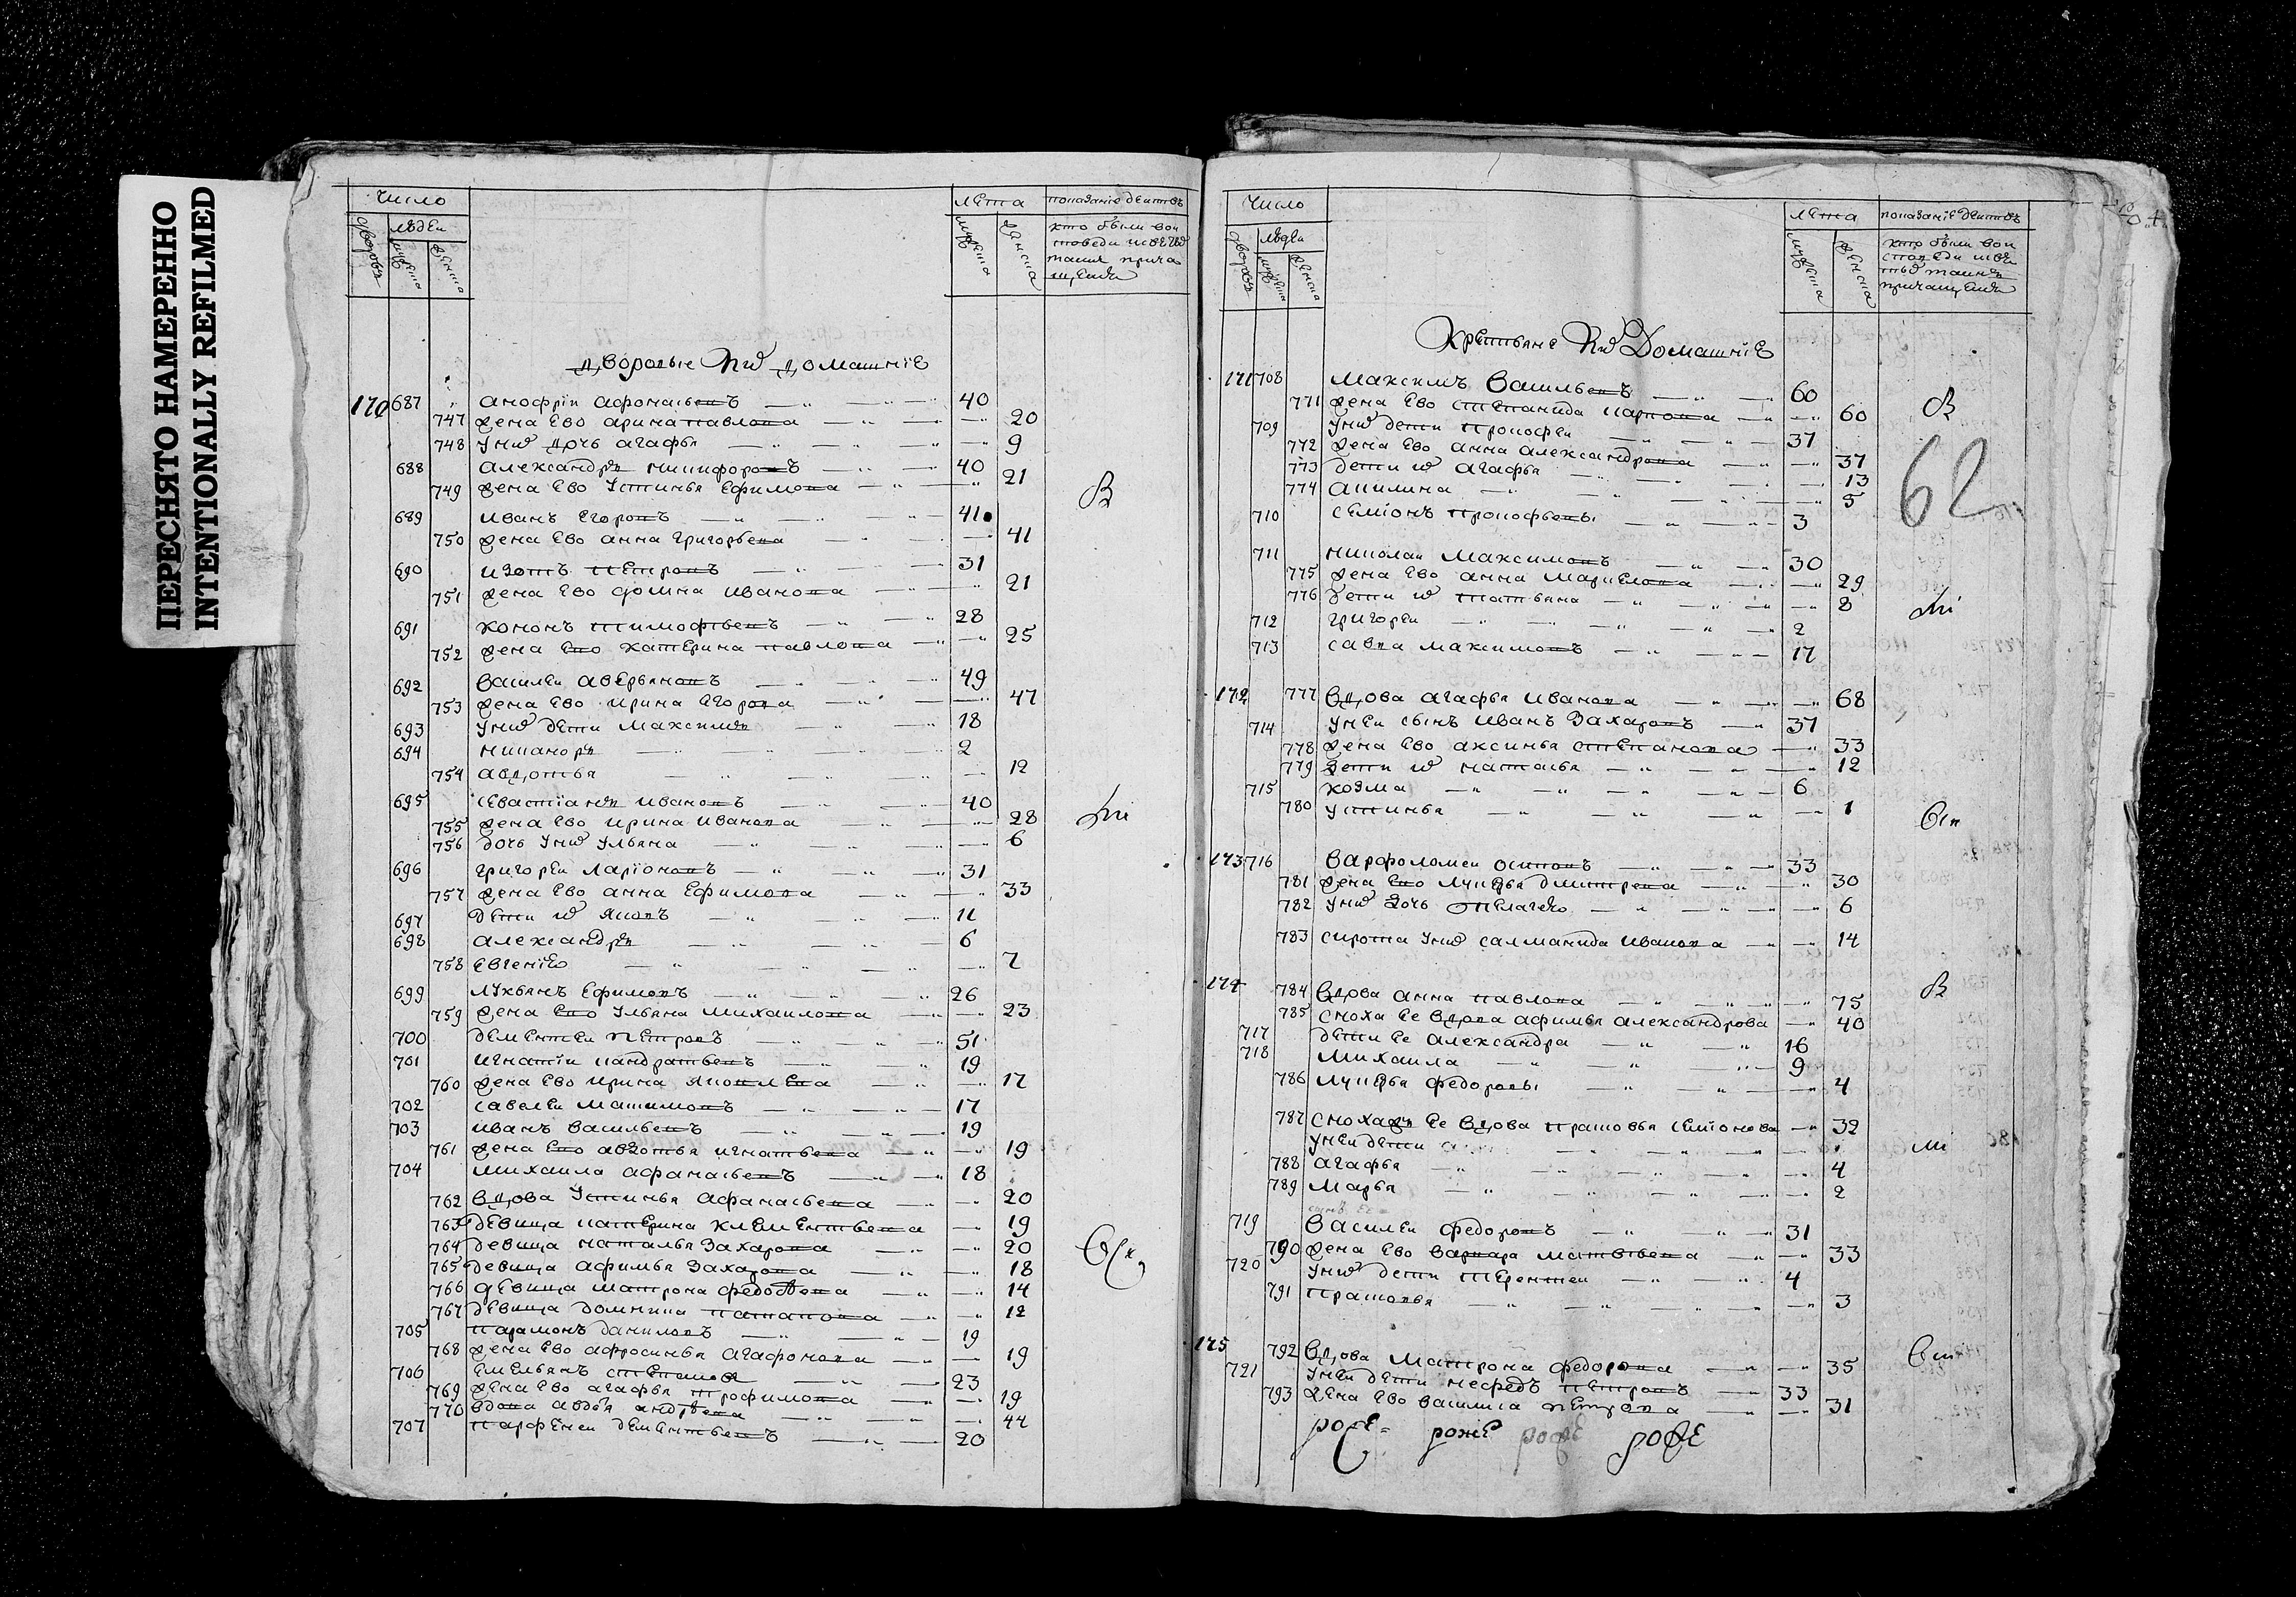 ПЕРЕСНЯТО НАМЕРЕННО
INTENTIONALLY REFILMED
число лета показание деиствъ
дворовъ людеи мужеска женска мужеска женска кто были вои
споведи
прича
щения
дворовые их домашние
170 687 анофри афонасьевъ 40
747 жена ево арина павлова 20
748 у них дочь агафья 9
688 александръ никифоровъ 40
749 жена ево устинья ефимова 21
689 иванъ егоровъ 41
750 жена ево анна григорьева 41
690 изотъ петровъ 31
751 жена ево домна иванова 21
691 кононъ тимофѣевъ 28
752 жена ево катерина павлова 25
692 василеи аверьяновъ 49
753 жена ево ирина егорова 47
693 у них дети максимъ 18
694 никаноръ 2
754 авдотья 12
695 севастианъ ивановъ 40
755 жена ево ирина иванова 28
756 дочь у них ульяна 6
696 григореи ларионовъ 31
757 жена ево анна ефимова 33
697 дети их яковъ 11
698 александръ 6
758 евгению 2
699 лукьянъ ефимовъ 26
759 жена ево ульяна михаилова 23
700 дементеи петровъ 51
701 игнатіи кандратьевъ 19
760 жена ево ирина яковлева 17
702 савелеи максимовъ 17
703 иванъ васильевъ 19
761 жена ево авдотья игнатьева 19
704 михаила афанасьевъ 18
762 вдова устинья афанасьева 20
763 девица катерина клементьева 19
764 девица наталья захарова 20
765 девица афимья захарова 18
766 девица матрона федотова 14
767 девица домника патапова 12
705 парамонъ даниловъ 19
768 жена ево афросинья агафонова 19
706 емельянъ степановъ 23
769 жена ево агафья трофимова 19
770 вдова авдотья андреева 44
707 парфенеи дементьевъ 20
число лета показание деиствъ
дворовъ людеи мужеска женска мужеска женска кто были вои
споведи
причащения
крестьяне их домашние
171 708 максимъ васильевъ 60
771 жена ево степанида карпова 60
709 у них дети прокофеи 37
772 жена ево анна александрова 37
773 дети их агафья 13
774 акилина 5
710 семионъ прокофьевы 3
62
711 николаи максимовъ 30
775 жена ево анна маркелова 29
776 дети их татьяна 8
712 григореи 2
713 савва максимовъ 17
172 777 вдова агафья иванова 68
714 у неи сынъ иванъ захаровъ 37
778 жена ево аксинья степанова 33
779 дети их наталья 12
715 козма 6
780 устинья 1
173 716 варфоломеи осиповъ 33
781 жена ево лукерья дмитрева 30
782 у них дочь пелагею 6
783 сирота у них салманида иванова 14
174 784 вдова анна павлова 75
785 сноха ее вдова афимья александрова 40
717 дети ее александра 16
718 михаила 9
786 лукерья федоровы 4
787 сноха ее вдова прасковья семионова 32
у неи дети
788 агафья 4
789 марья 2
719 василеи федоровъ 31
790 жена ево варвара матвѣева 33
720 у них дети терентеи 4
791 прасковья 3
175 792 вдова матрона федорова 35
721 у неи дети нефедъ петровъ 33
793 жена ево василиса петрова 31
роже роже роже роже